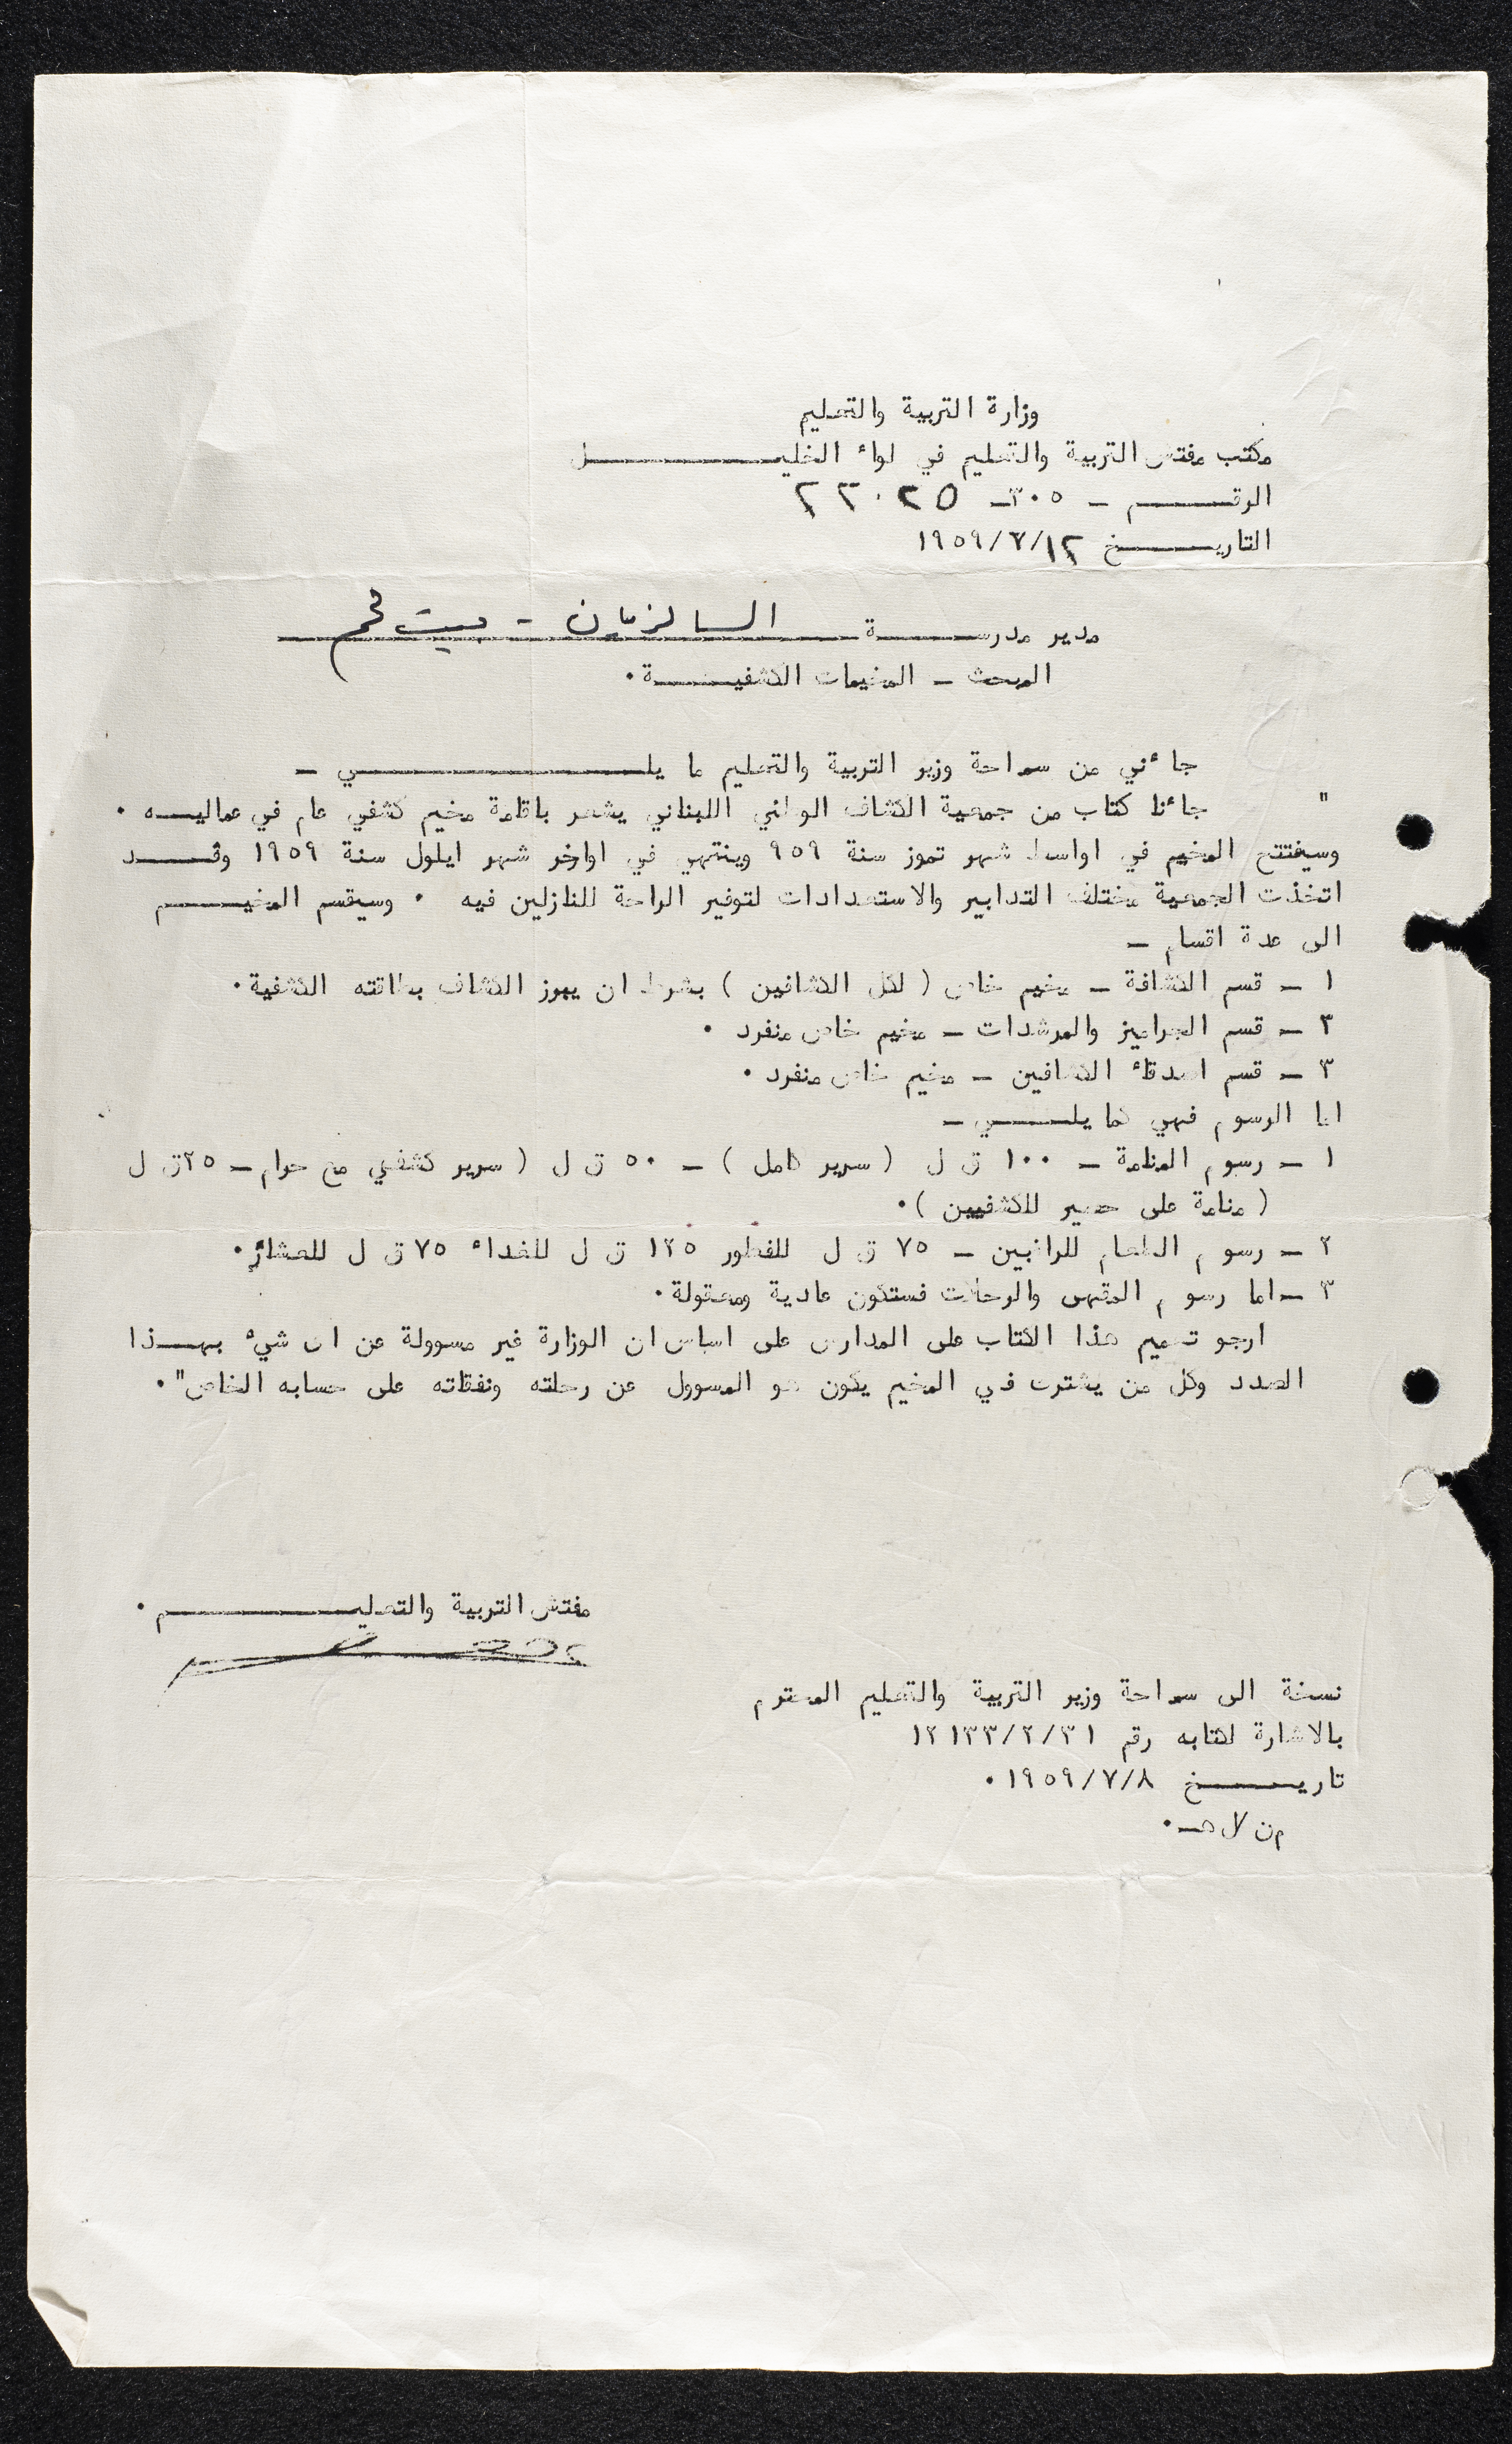 وزارة التربية والتعليم
مكتب مفتش التربية والتعليم في لواء الخليـــــل
الرقـــــم – ٣٠٥–
التاريـــــخ ١٩٥٩/٧/١٢
مدير مدرســـــة السالزيان - بيت لحم
المبحث – المخيمات الكشفيـــــة.
جاءني من سماحة وزير التربية والتعليم ما يلـــــي –
" جاءنا كتاب من جمعية الكشاف الوطني اللبناني يشعر باقامة مخيم كشفي عام في عماليـــه .
وسيفتتح المخيم في اواسط شهر تموز سنة ٩٥٩ وينتهي في اواخر شهر ايلول سنة ١٩٥٩ وقـــــد
اتخذت الجمعية مختلف التدابير والاستعدادات لتوفير الراحة للنازلين فيه . وسيقسم المخيـــــم
الى عدة اقسام –
١ – قسم الكشافة – مخيم خاص ( لكل الكشافين ) بشرط ان يبرز الكشاف بطاقته الكشفية.
٢ – قسم الجراميز والمرشدات – مخيم خاص منفرد .
٣ – قسم اصدقاء الكشافين – مخيم خاص منفرد .
اما الرسوم فهي كما يلـــــي –
١ – رسوم المنامة – ١٠٠ ق ل ( سرير كامل ) – ٥٠ ق ل ( سرير كشفي مع حرام – ٢٥ق ل
( منامة على حصير للكشفيين ).
٢ – رسوم الطعام للراغبين – ٧٥ ق ل للفطور ١٢٥ ق ل للغداء ٧٥ ق ل للعشاء.
٣ –اما رسوم المقهى والرحلات فستكون عادية ومعقولة.
ارجو تعميم هذا الكتاب على المدارس على اساس ان الوزارة غير مسوولة عن اى شيء بهـــذا
الصدد وكل من يشترك في المخيم يكون هو المسوول عن رحلته ونفقاته على حسابه الخاص".
مفتش التربية والتعليـــــم.
نسخة الى سماحة وزير التربية والتعليم المحترم
بالاشارة لكتابه رقم ١٢١٣٣/٢/٣١
تاريـــــخ ١٩٥٩/٧/٨.